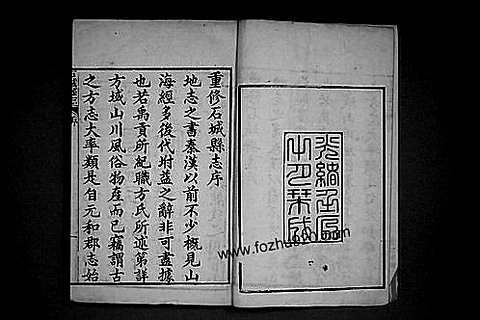 光緒
重修石城縣志序
地志之書秦漢以前不少概見山
海經多後代坿益之辭非可盡據
也若禹貢所紀職方氏所述第詳
方域山川風俗物產而已竊謂古
之方志大率類是自元和郡志始